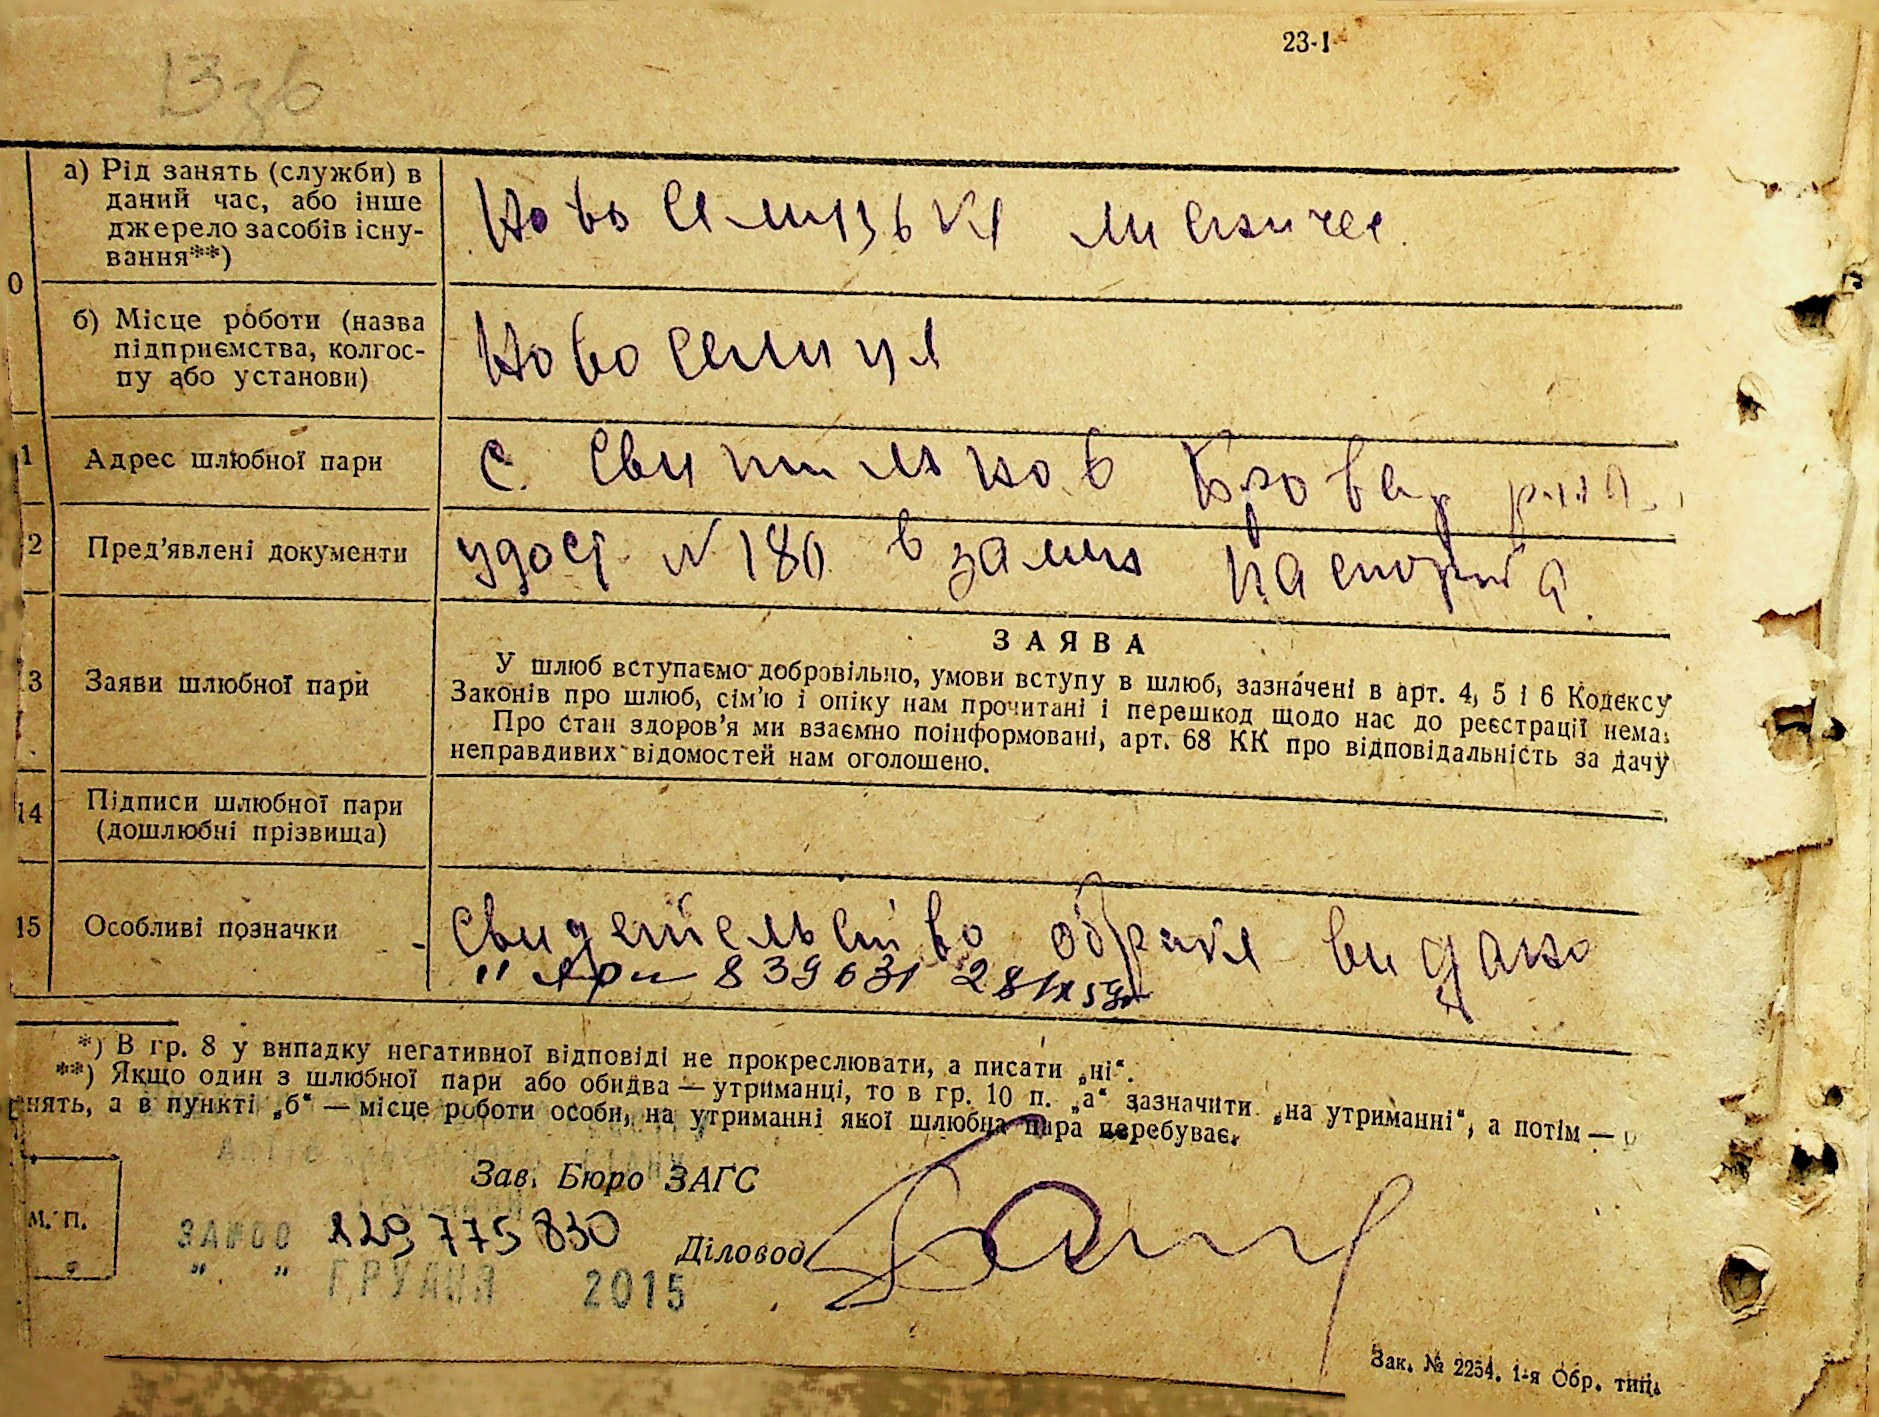 23-I
13зв
а) Рід занять (служби) в
даний час, або інше
джерело засобів існу-
вання**)
0
б) Місце роботи (назва
підприємства, колгос-
пу або установи)
Новоселиця
1 Адрес шлюбної пари
с. Свитильнов Бровар р-на
2 Пред’явлені документи
удост. № 180 взамин паспорта.
З А Я В А
3 Заяви шлюбної пари
У шлюб вступаємо добровільно, умови вступу в шлюб, зазначені в арт. 4, 5 і 6 Кодексу
Законів про шлюб, сім’ю і опіку нам прочитані і перешкод щодо нас до реєстрації нема.
Про стан здоров’я ми взаємно поінформовані, арт. 68 КК про відповідальність за дачу
неправдивих відомостей нам оголошено.
14 Підписи шлюбної пари
(дошлюбні прізвища)
15 Особливі позначки
свидетельство обраке видано
839631 28/IX
*) В гр. 8 у випадку негативної відповіді не прокреслювати, а писати „ні“.
**) Якщо один з шлюбної пари або обидва — утриманці, то в гр. 10 п. „а“ зазначити „на утриманні“, а потім —
нять, а в пункті „б“ — місце роботи особи, на утриманні якої шлюбна пара перебуває.
Зав. Бюро ЗАГС
М. П.
775 830
Діловод
" " ГРУДНЯ 2015
Зак. № 2254. 1-я Обр. тип.